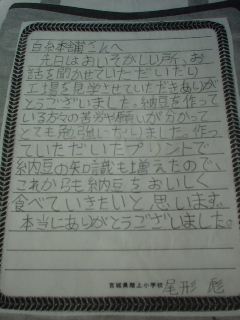 白糸本舗さんへ
先日はおいそがしい所、お
話を聞かせていただいたり
工場を見学させていただきありが
とうございました。納豆を作って
いる方々の苦労や願いが分かって
とても勉強になりました。作っ
ていただいたプリントで
納豆の知識も増えたので、
これからも納豆をおいしく
食べていきたいと思います。
本当にありがとうございました。
宮城県階上小学校 尾形 彪